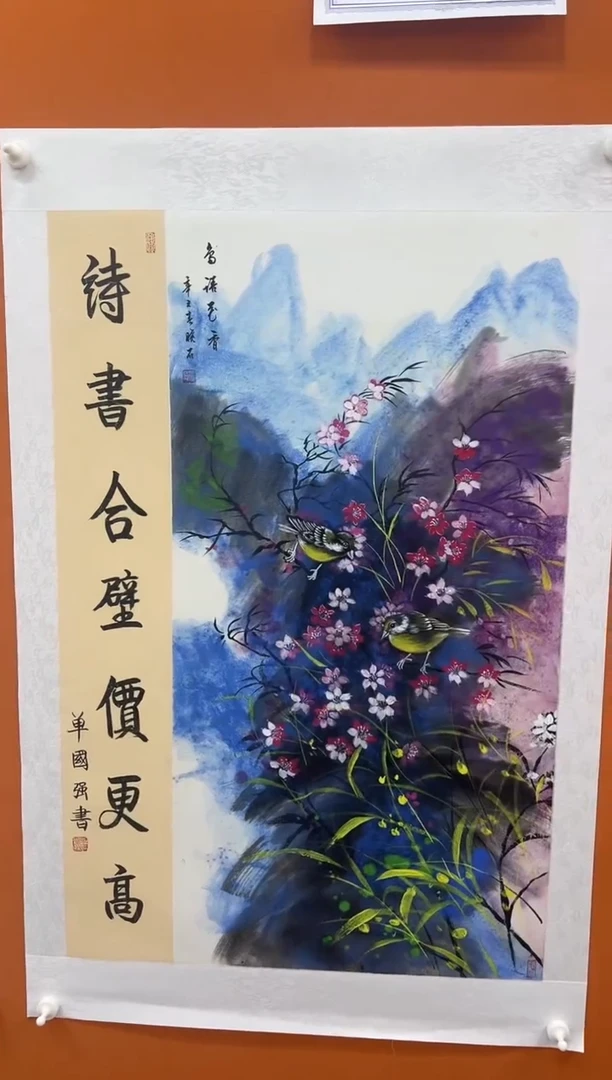 鳥語花香
辛丑春石
詩書合璧價更高
单國强書